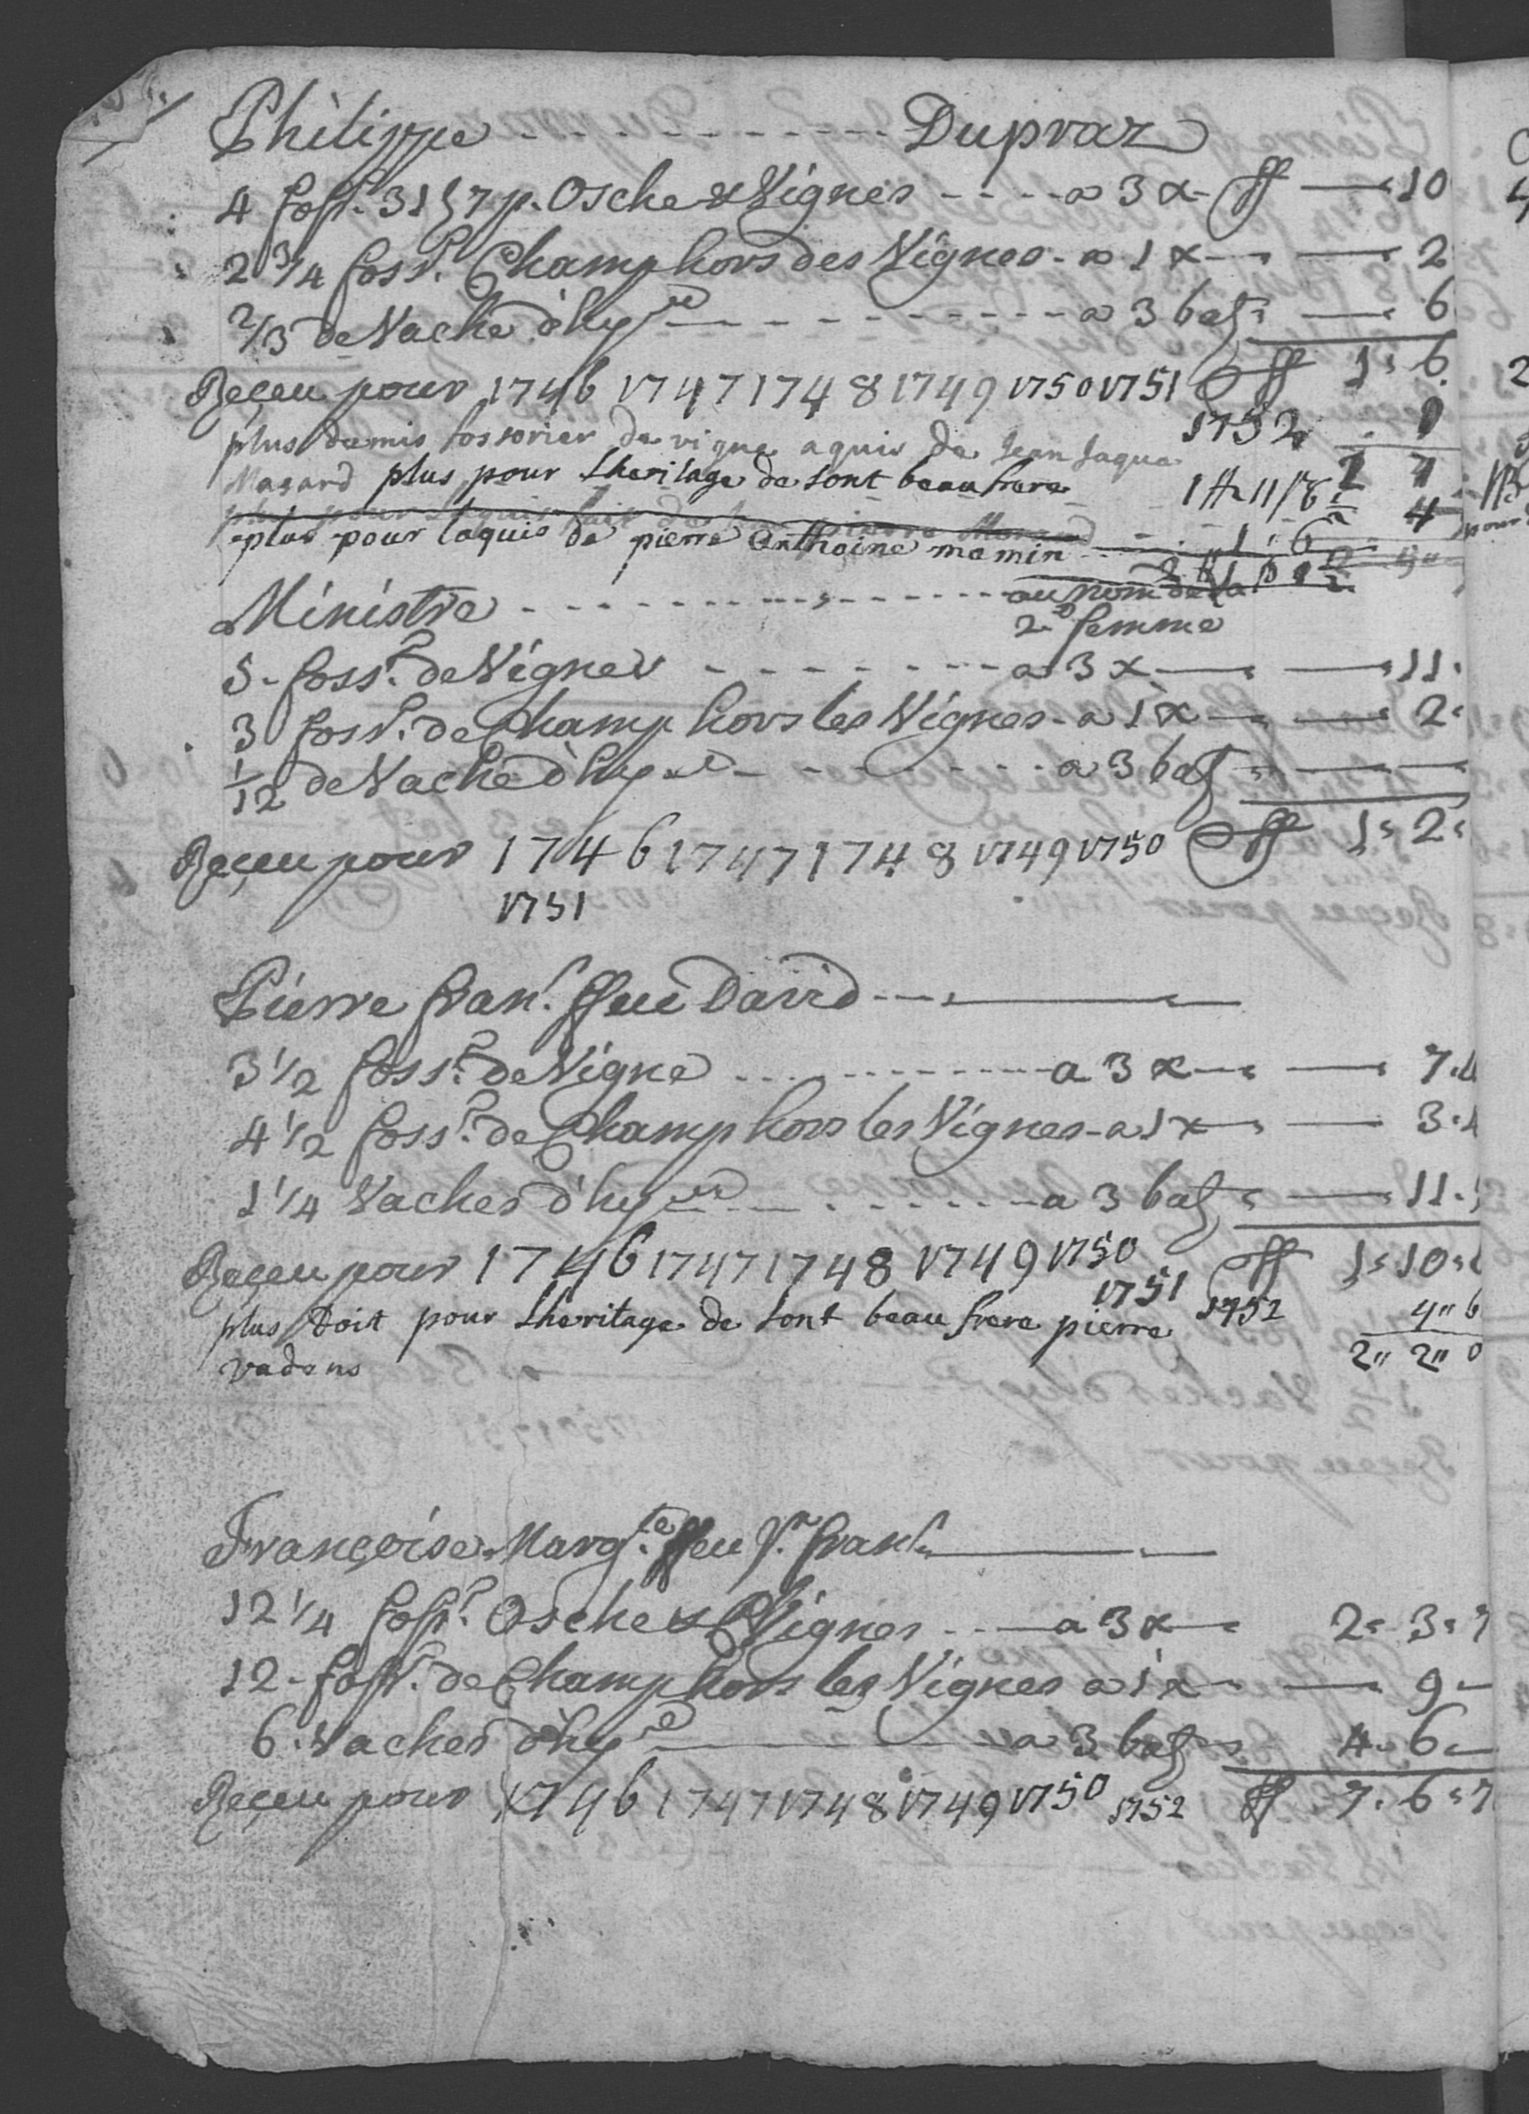 Philippe - - - - - - - - - - - Dupraz
4 foss.r 31 § 7 p. Osche & Vignes - - - - a 3 x - ff — 10
2 3/4 foss.r Champ hors des Vignes - a 1 x — — 2
2/3 de Vache d'hyver — - - - - - - - - a 3 batz — 6
Reçeu pour 1746 1747 1748 1749 1750 1751 ff 1 = 6
1752
plus demis fossorier de vigne aquis de Jean Jaque
Masard plus pour Lheritage de sont beau frere
plus pour laquis de pierre Anthoine mamin
Ministre - - - - - - - - - - - au nom de sa
2e femme
5 - foss.r de Vignes - - - - - - - - a 3 x — — 11
3 foss.r de Champ hors les Vignes - a 1 x — — 2
1/12 de Vache d'hyver - - - - - - - a 3 batz — —
Reçeu pour 1746 1747 1748 1749 1750 ff 1 = 2
1751
Pierre fran.s ffeu David - - - —
3 1/2 foss.r de Vigne - - - - - - - - a 3 x — — 7.
4 1/2 foss.r de Champ hors les Vignes - a 1 x — — 3.
1 1/4 Vaches d'hyver - - - - - - - a 3 batz — 11.
Reçeu pour 1746 1747 1748 1749 1750 ff 1 = 10 =
1751 1752 4" 6
plus Doit pour Lheritage de sont beau frere pierre
2" 2" 0
Françoise Marg.te ffeu P.r fran.s —
12 1/4 foss.r Osche & Vignes - - - a 3 x — 2 = 3 =
12 - foss.r de Champ hors les Vignes a 1 x — — 9 —
6 . Vaches d'hyver — a 3 batz 4 . 6 —
Reçeu pour 1746 1747 1748 1749 1750 1752 ff 7 . 6 = 7